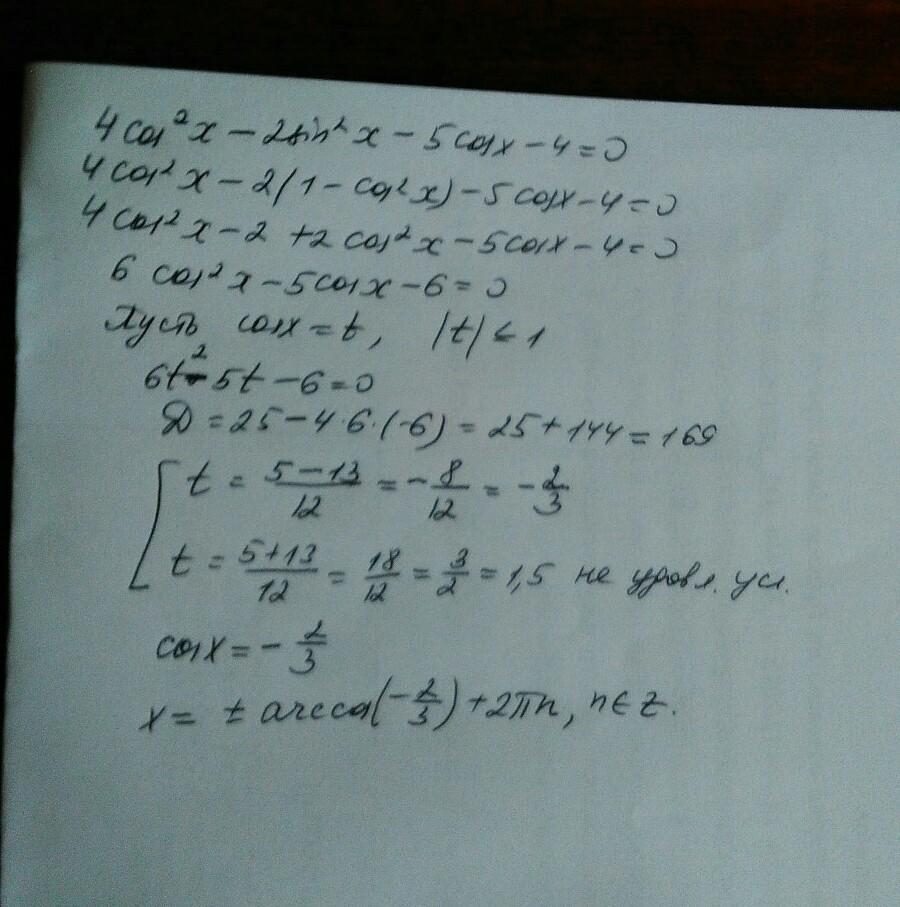 4cos²x − 2sin²x − 5cosx − 4 = 0
4cos²x − 2(1 − cos²x) − 5cosx − 4 = 0
4cos²x − 2 + 2cos²x − 5cosx − 4 = 0
6 cos²x − 5cosx − 6 = 0
Пусть cosx = t, |t| ≤ 1
6t² − 5t − 6 = 0
D = 25 − 4·6·(−6) = 25 + 144 = 169
[ t = (5 − 13)/12 = −8/12 = −2/3
t = (5 + 13)/12 = 18/12 = 3/2 = 1,5 не удовл. усл.
cosx = −2/3
x = ± arccos(−2/3) + 2πn, n ∈ Z.